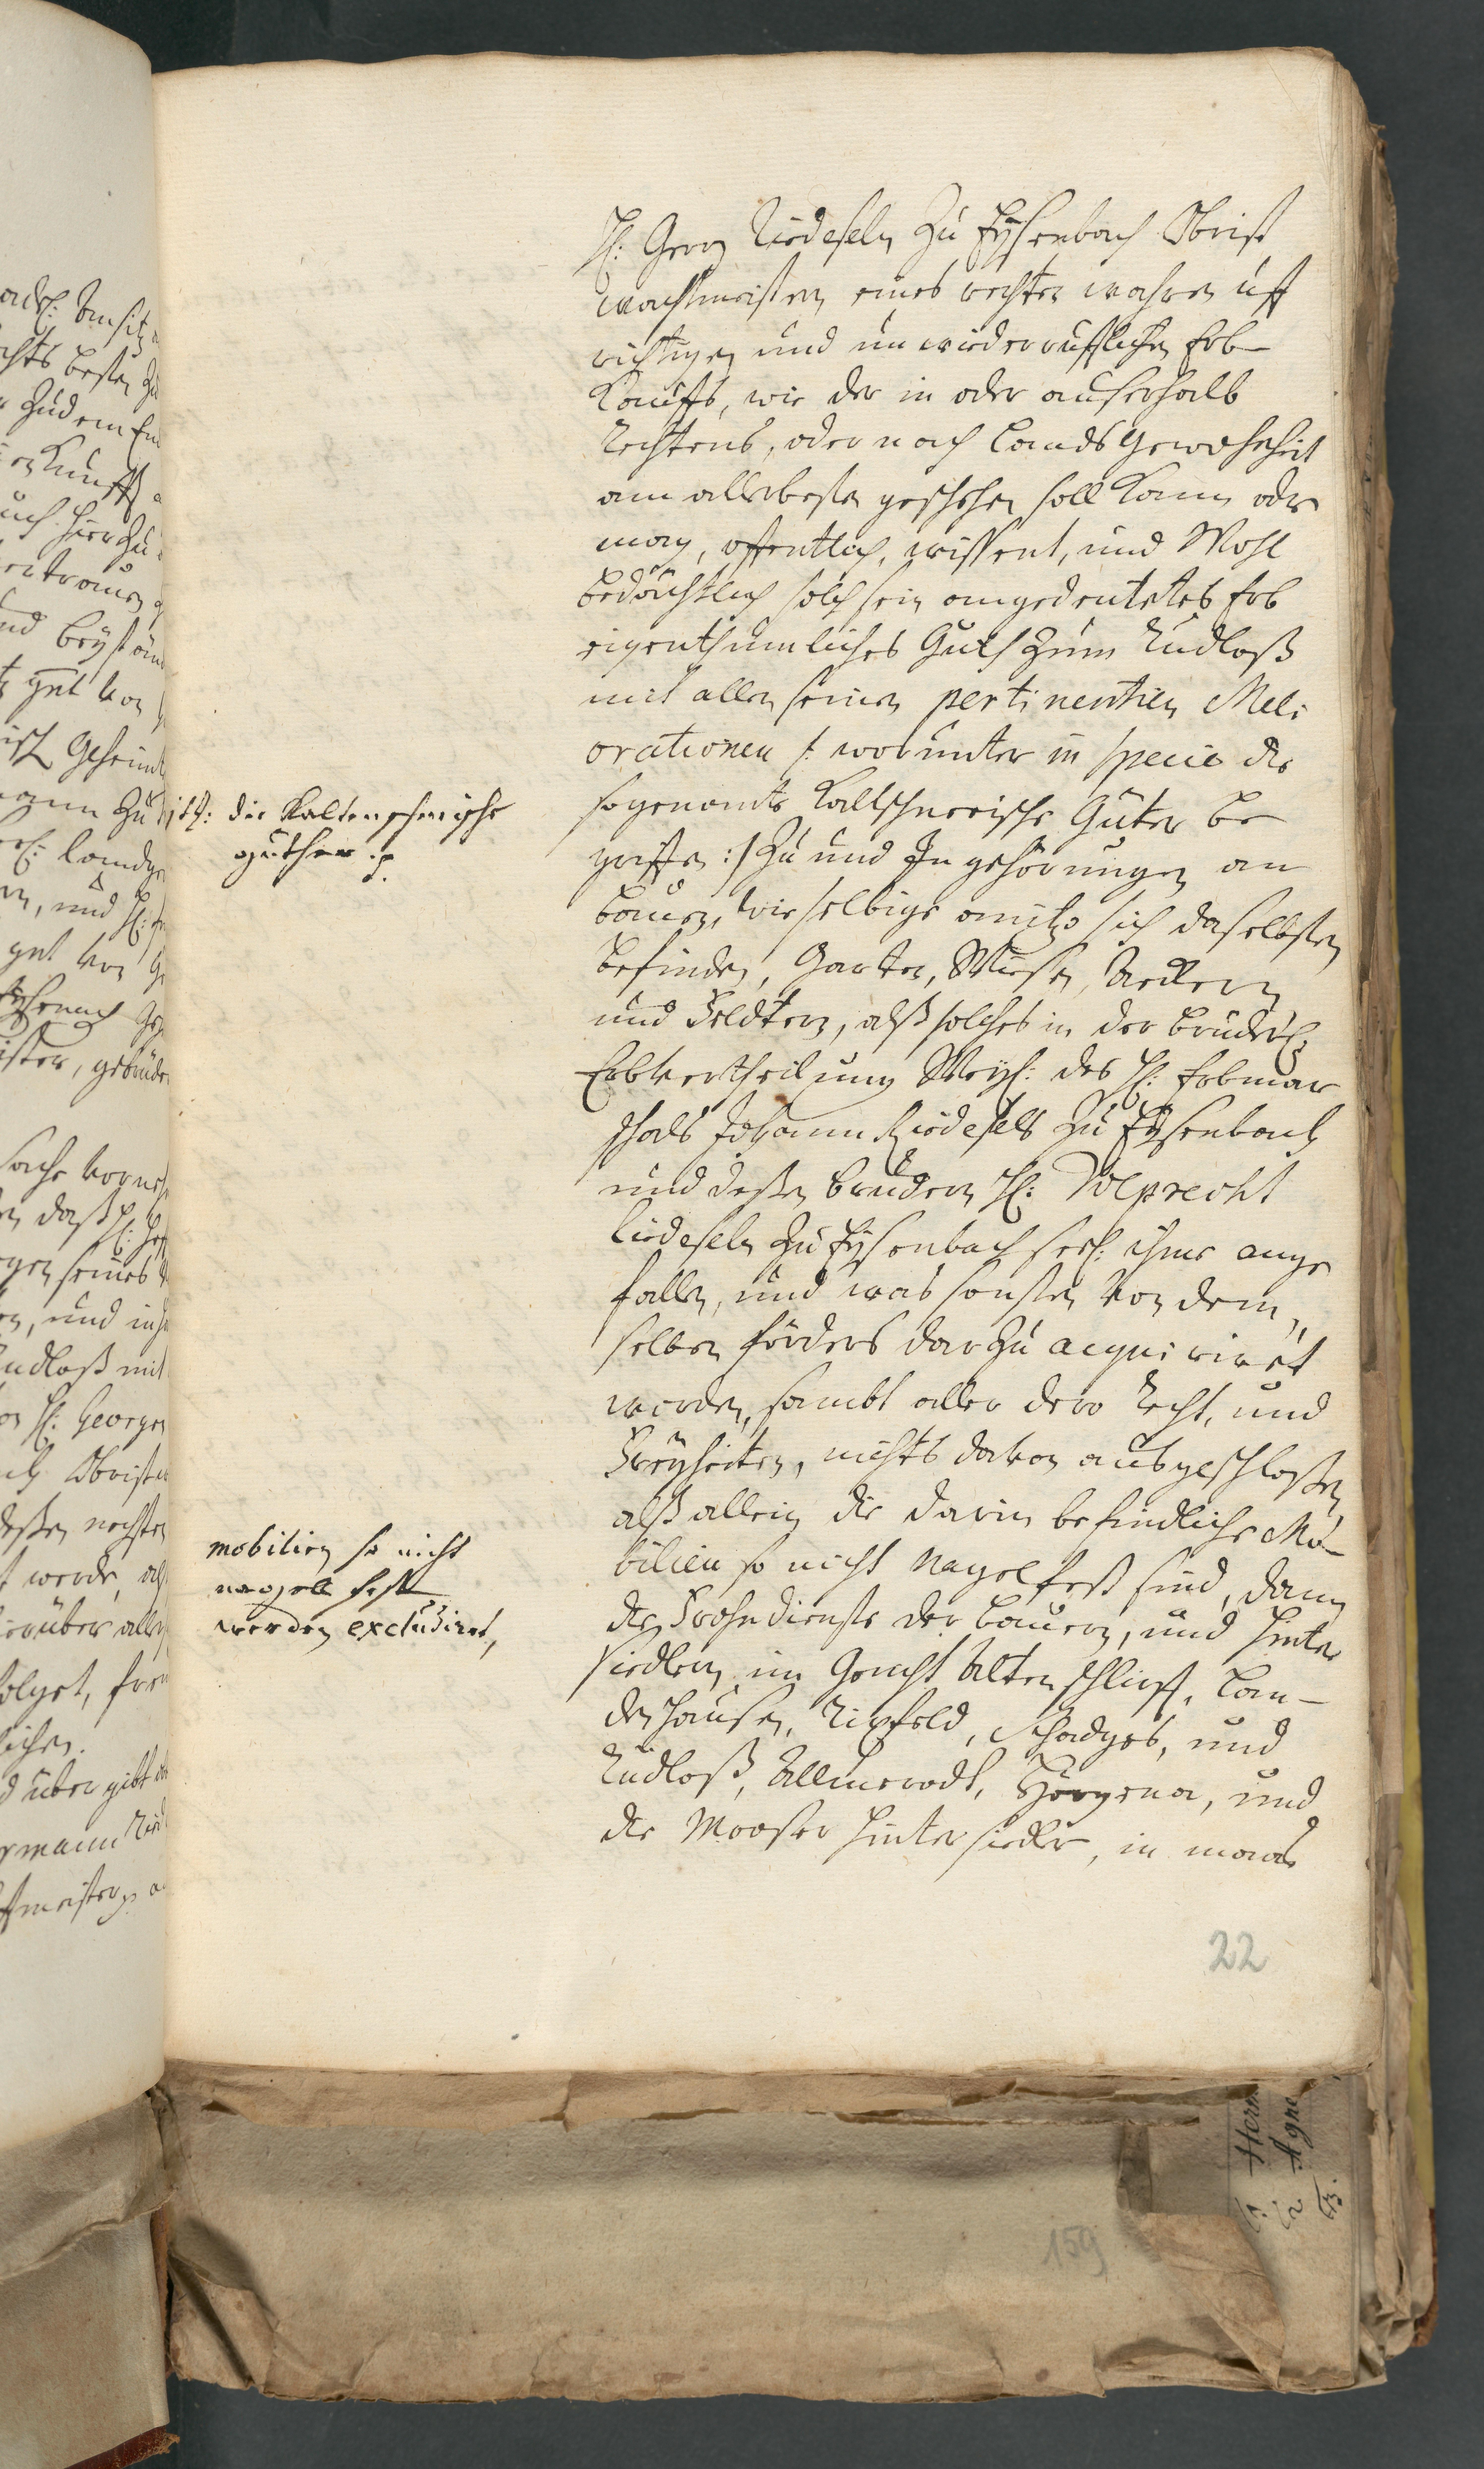 H: Georg Riedeseln Zu Eysenbach Obrist
wachtmeistern eines rechten wahren uff
richtigen und unwiederrufflichen Erb-
Kauffs, wie der in oder auserhalb
Rechtens, oder nach Lands gewohnheit
am allerbesten geschehen soll kann oder
mag, offentlich, wissent, und Wohl
bedächtlich solch sein angedeutetes Erb
eigenthumliches Guth Zum Rudloß
mit allen seinen pertinentien Meli
orationen /: worunter in specie die
sogenante Kaltschnerische Güter be
griffen :/ Zu und In gehörungen an
bauen, wie selbige anitzo sich daselbsten
befinden, Garten, Wiesen, Aeckern
und Feldtern, alß solches in der brüderl:
Erbvertheilung Weyl: des H: Erbmar
schals Johann Riedesels Zu Eysenbach
und deßen brudern H: Volprecht
Riedeseln Zu Eysenbach seel: ihme ange
fallen, und was sonsten von dem,,
selben förders darzu acquiriret
worden, sambt aller dero Recht, und
Freyheiten, nichts davon ausgeschloßen
alß allein die darin befindliche Mo-
bilien so nicht Nagelfest sind, dann
die Frohndienste der bauern, und hinter
siedlern im Gericht Altenschlirff, Lan-
denhausen, Rixfeld, Schadges, und
Rudloß, Allmerodt, Hörgena, und
die Mooser Hintersiedler, in maas
jtz: die Kaltenschnerische
güther p.
mobilien so nicht
nagell fest
werden excludiret,
22
159
Herm
Agne